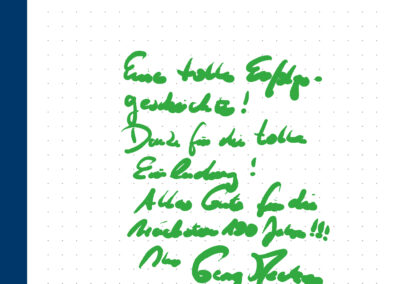 Eine tolle Erfolgs-
geschichte!
Danke für die tolle
Einladung!
Alles Gute für die
nächsten 100 Jahre!!!
Georg